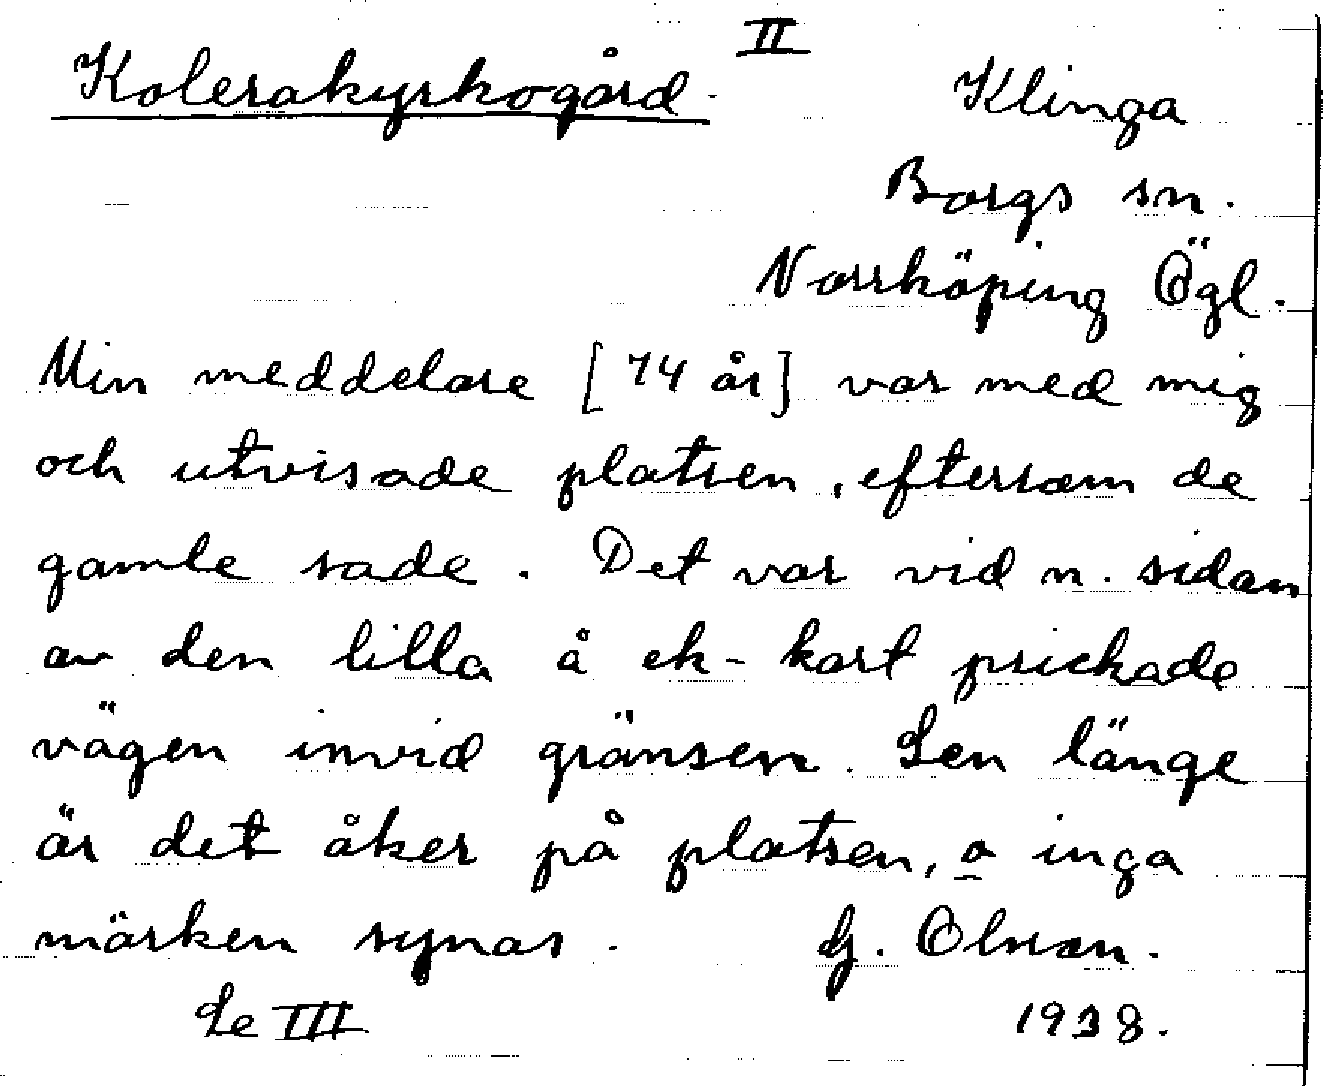 II
Kolerakyrkogård.
Klinga
Borgs sn.
Norrköping Ögl.
Min meddelare [74 år] var med mig
och utvisade platsen, eftersom de
gamle sade. Det var vid n. sidan
av den lilla å ek-kart prickade
vägen invid gränsen. Sen länge
är det åker på platsen, o inga
märken synas. G. Olsson.
Se III 1938.